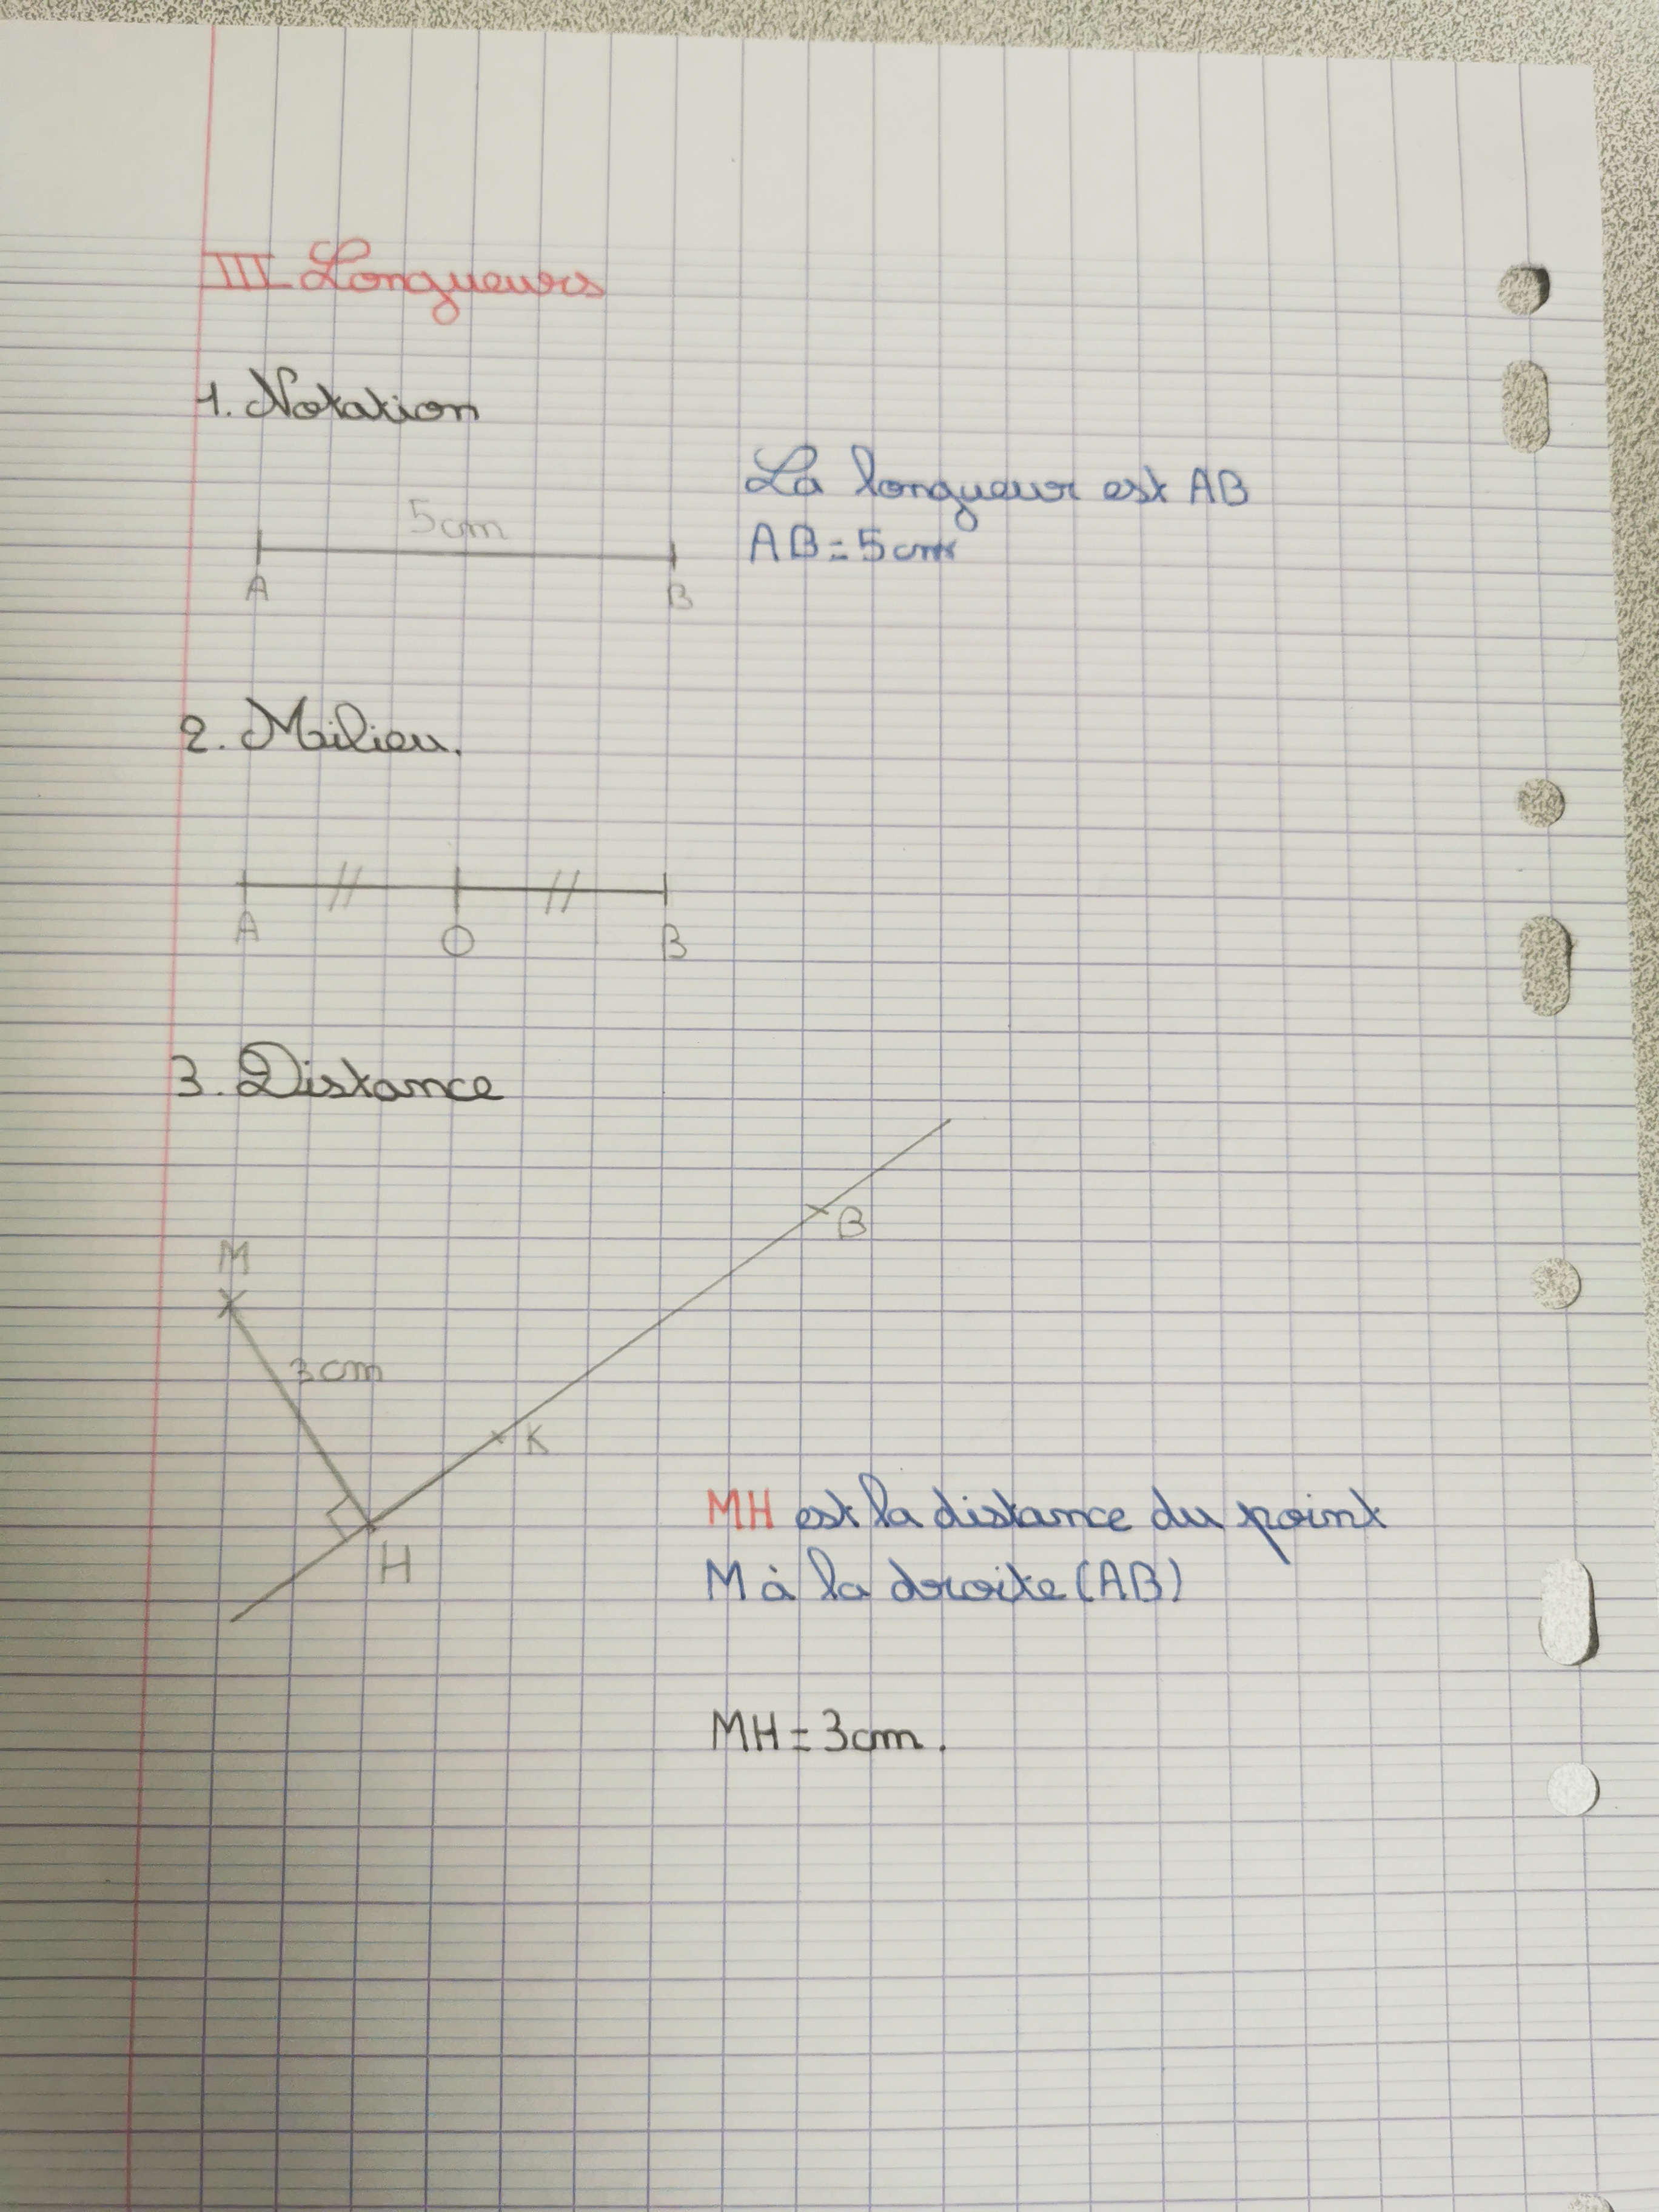 III Longueurs
1. Notation
La longueur est AB
5cm
AB = 5cm
A B
2. Milieu.
A O B
3. Distance
B
M
3cm
K
MH est la distance du point
H
M à la droite (AB)
MH = 3cm.